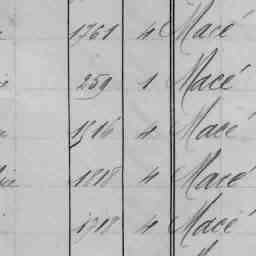 1361 4 Macé
259 1 Macé
1516 4 Macé
1818 4 Macé
1918 4 Macé